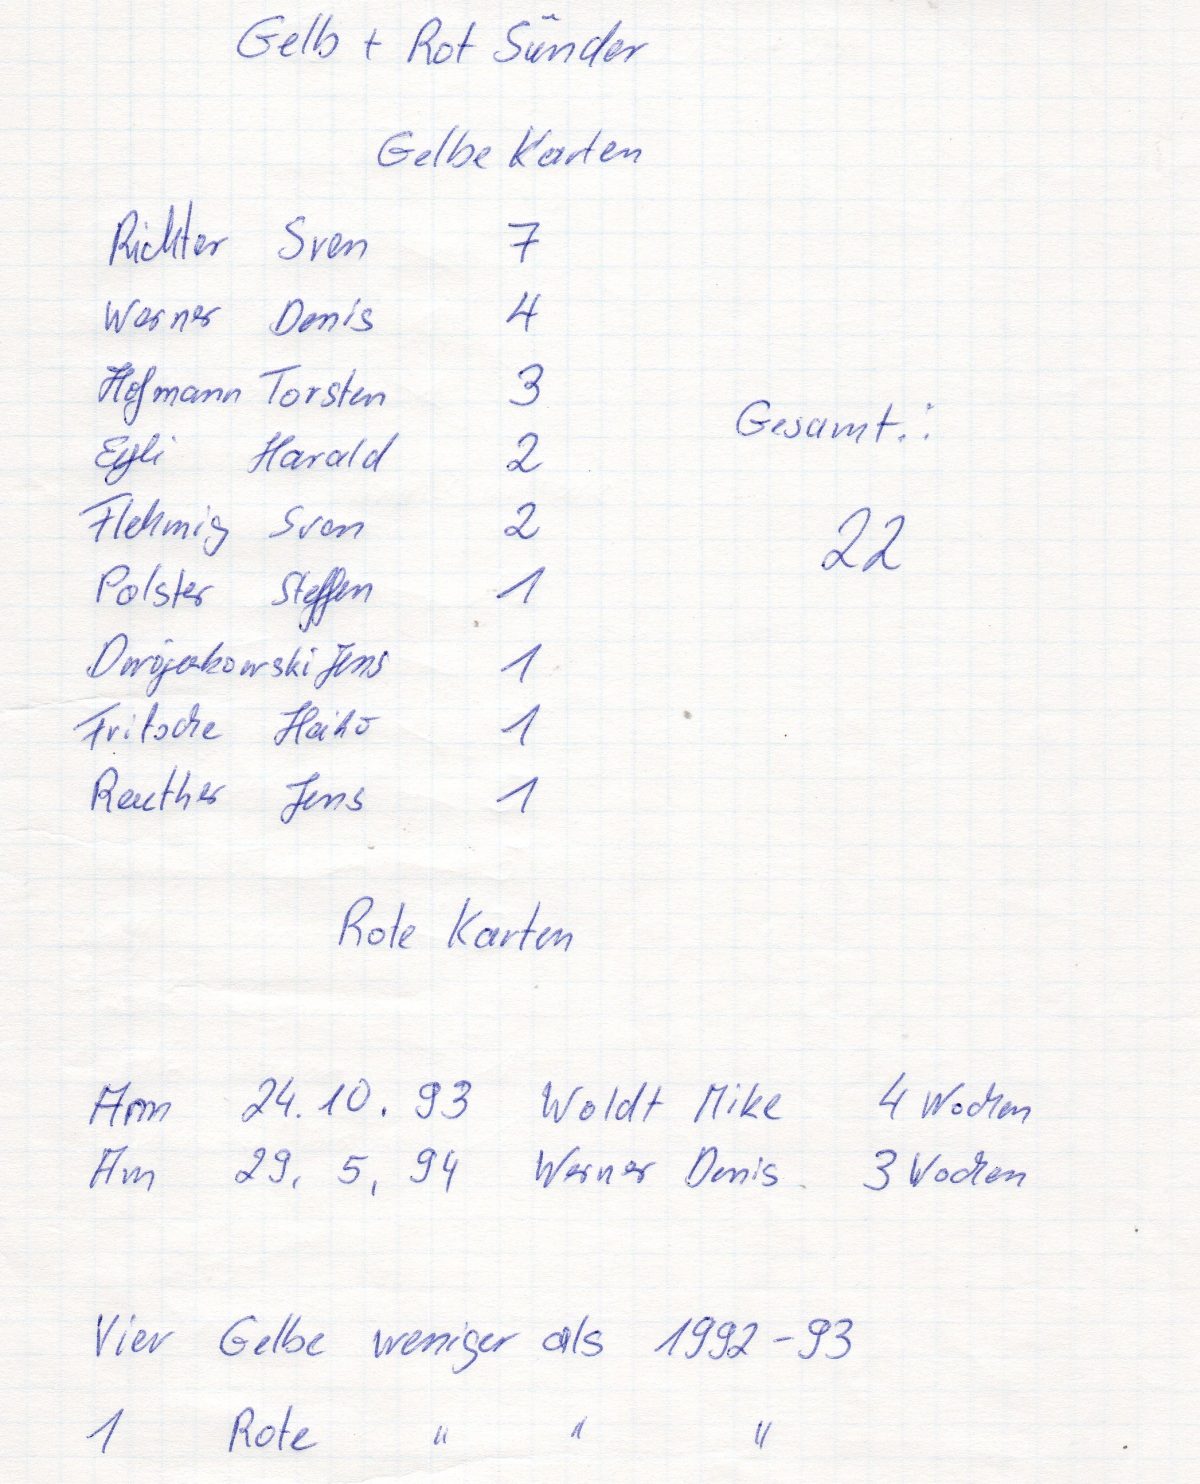 Gelb + Rot Sünder
Gelbe Karten
Richter Sven 7
Werner Denis 4
Hofmann Torsten 3
Egli Harald 2
Gesamt.:
Flehmig Sven 2
22
Polster Steffen 1
Jens 1
Fritsche Heiko 1
Reuther Jens 1
Rote Karten
Am 24. 10. 93 Woldt Mike 4 Wochen
Am 29. 5, 94 Werner Denis 3 Wochen
Vier Gelbe weniger als 1992 - 93
1 Rote " " "